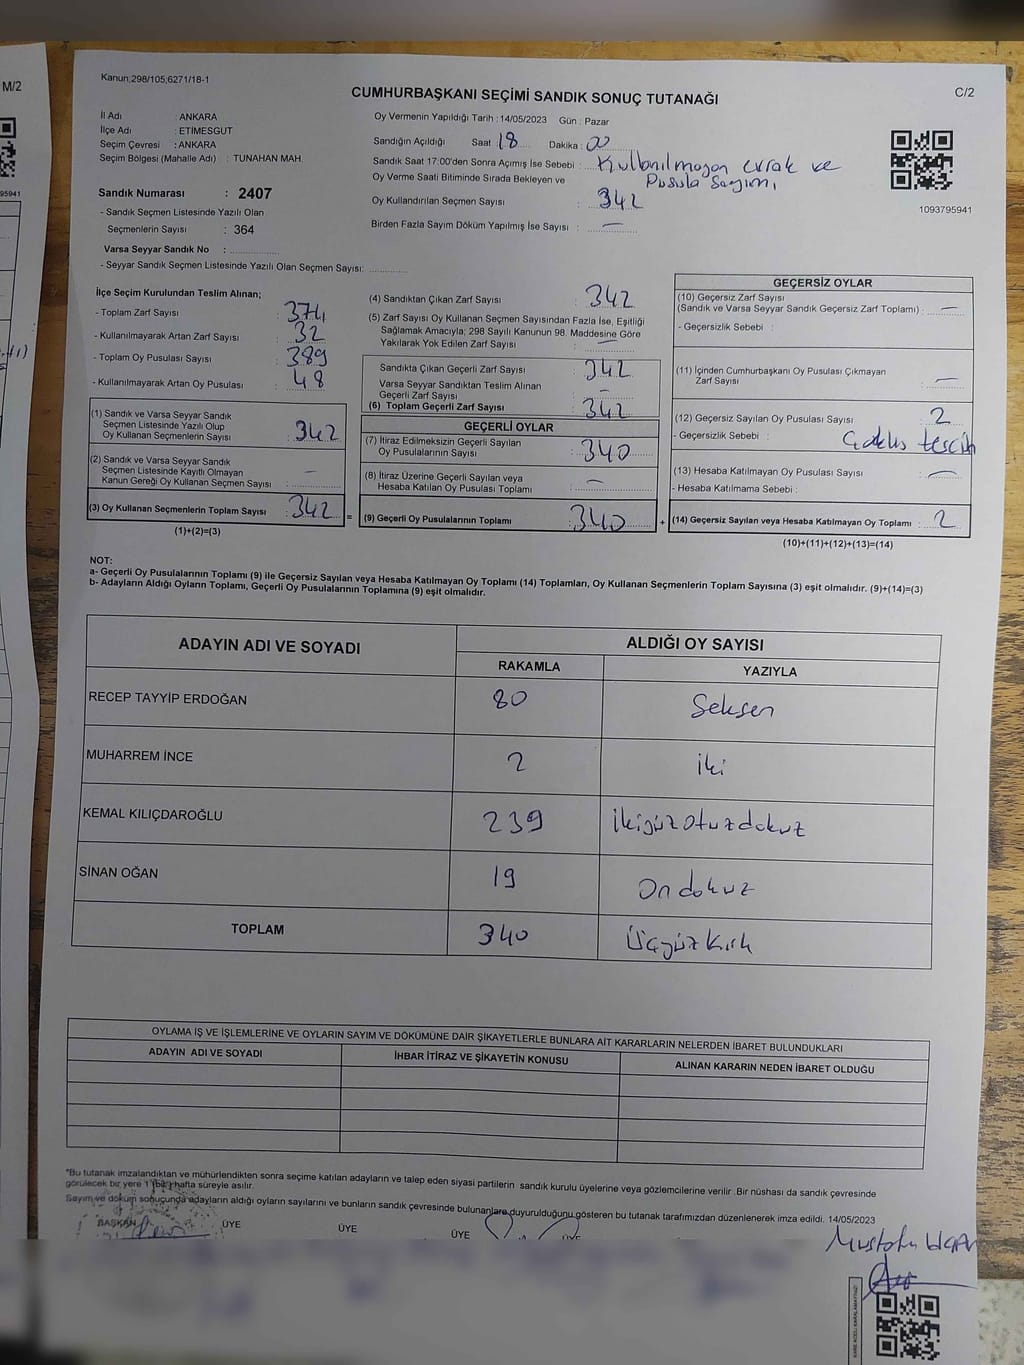 M/2
Kanun;298/105;6271/18-1
CUMHURBAŞKANI SEÇİMİ SANDIK SONUÇ TUTANAĞI
C/2
İl Adı : ANKARA
İlçe Adı : ETİMESGUT
Seçim Çevresi : ANKARA
Seçim Bölgesi (Mahalle Adı) : TUNAHAN MAH.
Sandık Numarası : 2407
- Sandık Seçmen Listesinde Yazılı Olan
Seçmenlerin Sayısı : 364
Varsa Seyyar Sandık No : ..............
- Seyyar Sandık Seçmen Listesinde Yazılı Olan Seçmen Sayısı: ............
Oy Vermenin Yapıldığı Tarih : 14/05/2023 Gün : Pazar
Sandığın Açıldığı Saat 18 Dakika : 00
Sandık Saat 17:00'den Sonra Açımış İse Sebebi : Kullanılmayan evrak ve
Pusula Sayımı
Oy Verme Saati Bitiminde Sırada Bekleyen ve
Oy Kullandırılan Seçmen Sayısı : 342
Birden Fazla Sayım Döküm Yapılmış İse Sayısı : —
1093795941
95941
İlçe Seçim Kurulundan Teslim Alınan;
- Toplam Zarf Sayısı : 374
- Kullanılmayarak Artan Zarf Sayısı : 32
- Toplam Oy Pusulası Sayısı : 389
- Kullanılmayarak Artan Oy Pusulası : 48
(1) Sandık ve Varsa Seyyar Sandık
Seçmen Listesinde Yazılı Olup
Oy Kullanan Seçmenlerin Sayısı : 342
(2) Sandık ve Varsa Seyyar Sandık
Seçmen Listesinde Kayıtlı Olmayan
Kanun Gereği Oy Kullanan Seçmen Sayısı : —
(3) Oy Kullanan Seçmenlerin Toplam Sayısı : 342
(1)+(2)=(3)
(4) Sandıktan Çıkan Zarf Sayısı : 342
(5) Zarf Sayısı Oy Kullanan Seçmen Sayısından Fazla İse, Eşitliği
Sağlamak Amacıyla; 298 Sayılı Kanunun 98. Maddesine Göre
Yakılarak Yok Edilen Zarf Sayısı : —
Sandıkta Çıkan Geçerli Zarf Sayısı : 342
Varsa Seyyar Sandıktan Teslim Alınan
Geçerli Zarf Sayısı : —
(6) Toplam Geçerli Zarf Sayısı : 342
GEÇERLİ OYLAR
(7) İtiraz Edilmeksizin Geçerli Sayılan
Oy Pusulalarının Sayısı : 340
(8) İtiraz Üzerine Geçerli Sayılan veya
Hesaba Katılan Oy Pusulası Toplamı : —
= (9) Geçerli Oy Pusulalarının Toplamı : 340 +
GEÇERSİZ OYLAR
(10) Geçersiz Zarf Sayısı
(Sandık ve Varsa Seyyar Sandık Geçersiz Zarf Toplamı) : —
- Geçersizlik Sebebi :
(11) İçinden Cumhurbaşkanı Oy Pusulası Çıkmayan
Zarf Sayısı : —
(12) Geçersiz Sayılan Oy Pusulası Sayısı : 2
- Geçersizlik Sebebi : tercih
(13) Hesaba Katılmayan Oy Pusulası Sayısı : —
- Hesaba Katılmama Sebebi :
(14) Geçersiz Sayılan veya Hesaba Katılmayan Oy Toplamı : 2
(10)+(11)+(12)+(13)=(14)
NOT:
a- Geçerli Oy Pusulalarının Toplamı (9) ile Geçersiz Sayılan veya Hesaba Katılmayan Oy Toplamı (14) Toplamları, Oy Kullanan Seçmenlerin Toplam Sayısına (3) eşit olmalıdır. (9)+(14)=(3)
b- Adayların Aldığı Oyların Toplamı, Geçerli Oy Pusulalarının Toplamına (9) eşit olmalıdır.
ADAYIN ADI VE SOYADI ALDIĞI OY SAYISI
RAKAMLA YAZIYLA
RECEP TAYYİP ERDOĞAN 80 Seksen
MUHARREM İNCE 2 İki
KEMAL KILIÇDAROĞLU 239 İkiyüzotuzdokuz
SİNAN OĞAN 19 Ondokuz
TOPLAM 340 Üçyüzkırk
OYLAMA İŞ VE İŞLEMLERİNE VE OYLARIN SAYIM VE DÖKÜMÜNE DAİR ŞİKAYETLERLE BUNLARA AİT KARARLARIN NELERDEN İBARET BULUNDUKLARI
ADAYIN ADI VE SOYADI İHBAR İTİRAZ VE ŞİKAYETİN KONUSU ALINAN KARARIN NEDEN İBARET OLDUĞU
*Bu tutanak imzalandıktan ve mühürlendikten sonra seçime katılan adayların ve talep eden siyasi partilerin sandık kurulu üyelerine veya gözlemcilerine verilir .Bir nüshası da sandık çevresinde
görülecek bir yere 1 (bir) hafta süreyle asılır.
Sayım ve döküm sonucunda adayların aldığı oyların sayılarını ve bunların sandık çevresinde bulunanlara duyurulduğunu gösteren bu tutanak tarafımızdan düzenlenerek imza edildi. 14/05/2023
BAŞKAN ÜYE ÜYE ÜYE ÜYE
Mustafa